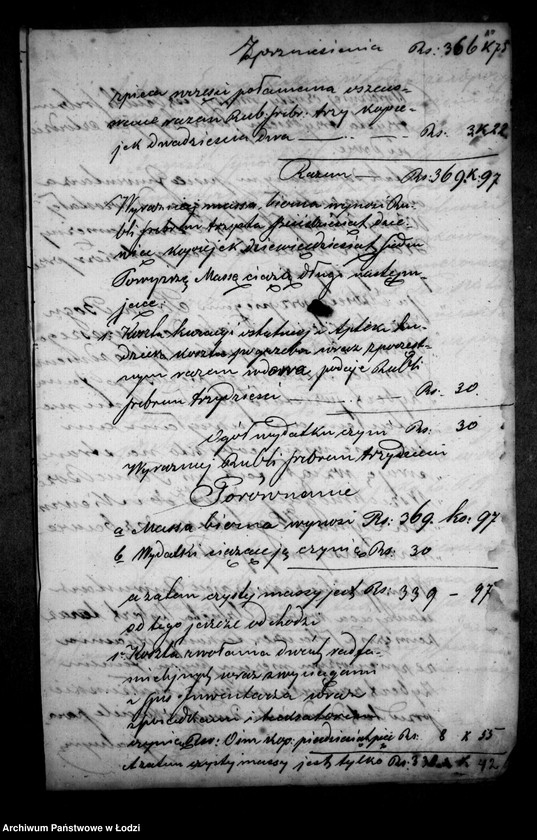 Z przeniesienia Rs: 366 K 75
rpieca części połamana oszaco-
wane razem Rub. srebr. trzy kopie-
jek dwadzieścia dwa Rs. 3 K 22
Razem — Rs. 369 K. 97
Wyraźniej massa bierna wynosi Ru-
bli srebrem trzysta sześćdziesiąt dzie-
więć kopiejek dziewięćdziesiąt siedm
Powyższą Massę ciążą długi następu-
jące:
1. Koszta kuracyi ostatniej i Apteki tu-
dzież koszta pogrzebu wraz z poczest-
nym razem wdowa, podaje Rubli
srebrem trzydzieści Rs. 30.
Ogół wydatku czyni Rs: 30
Wyraźniej Rubli srebrem trzydzieści
Porównanie
a Massa bierna wynosi Rs: 369. ko: 97
b Wydatki ciążące ją czynią Rs: 30
a zatem czystej massy jest Rs: 339 — 97
od tego jeszcze odchodzi
1. Koszta zwołania dwóch rad fa-
milijnych wraz z wyciągami
i Inwentarza wraz
z świadkami i taksatorami
czynią Rs: Ośm kop: pięćdziesiąt pięć Rs 8 K 55
A zatem czystej massy jest tylko Rs: K 42
Archiwum Państwowe w Łodzi